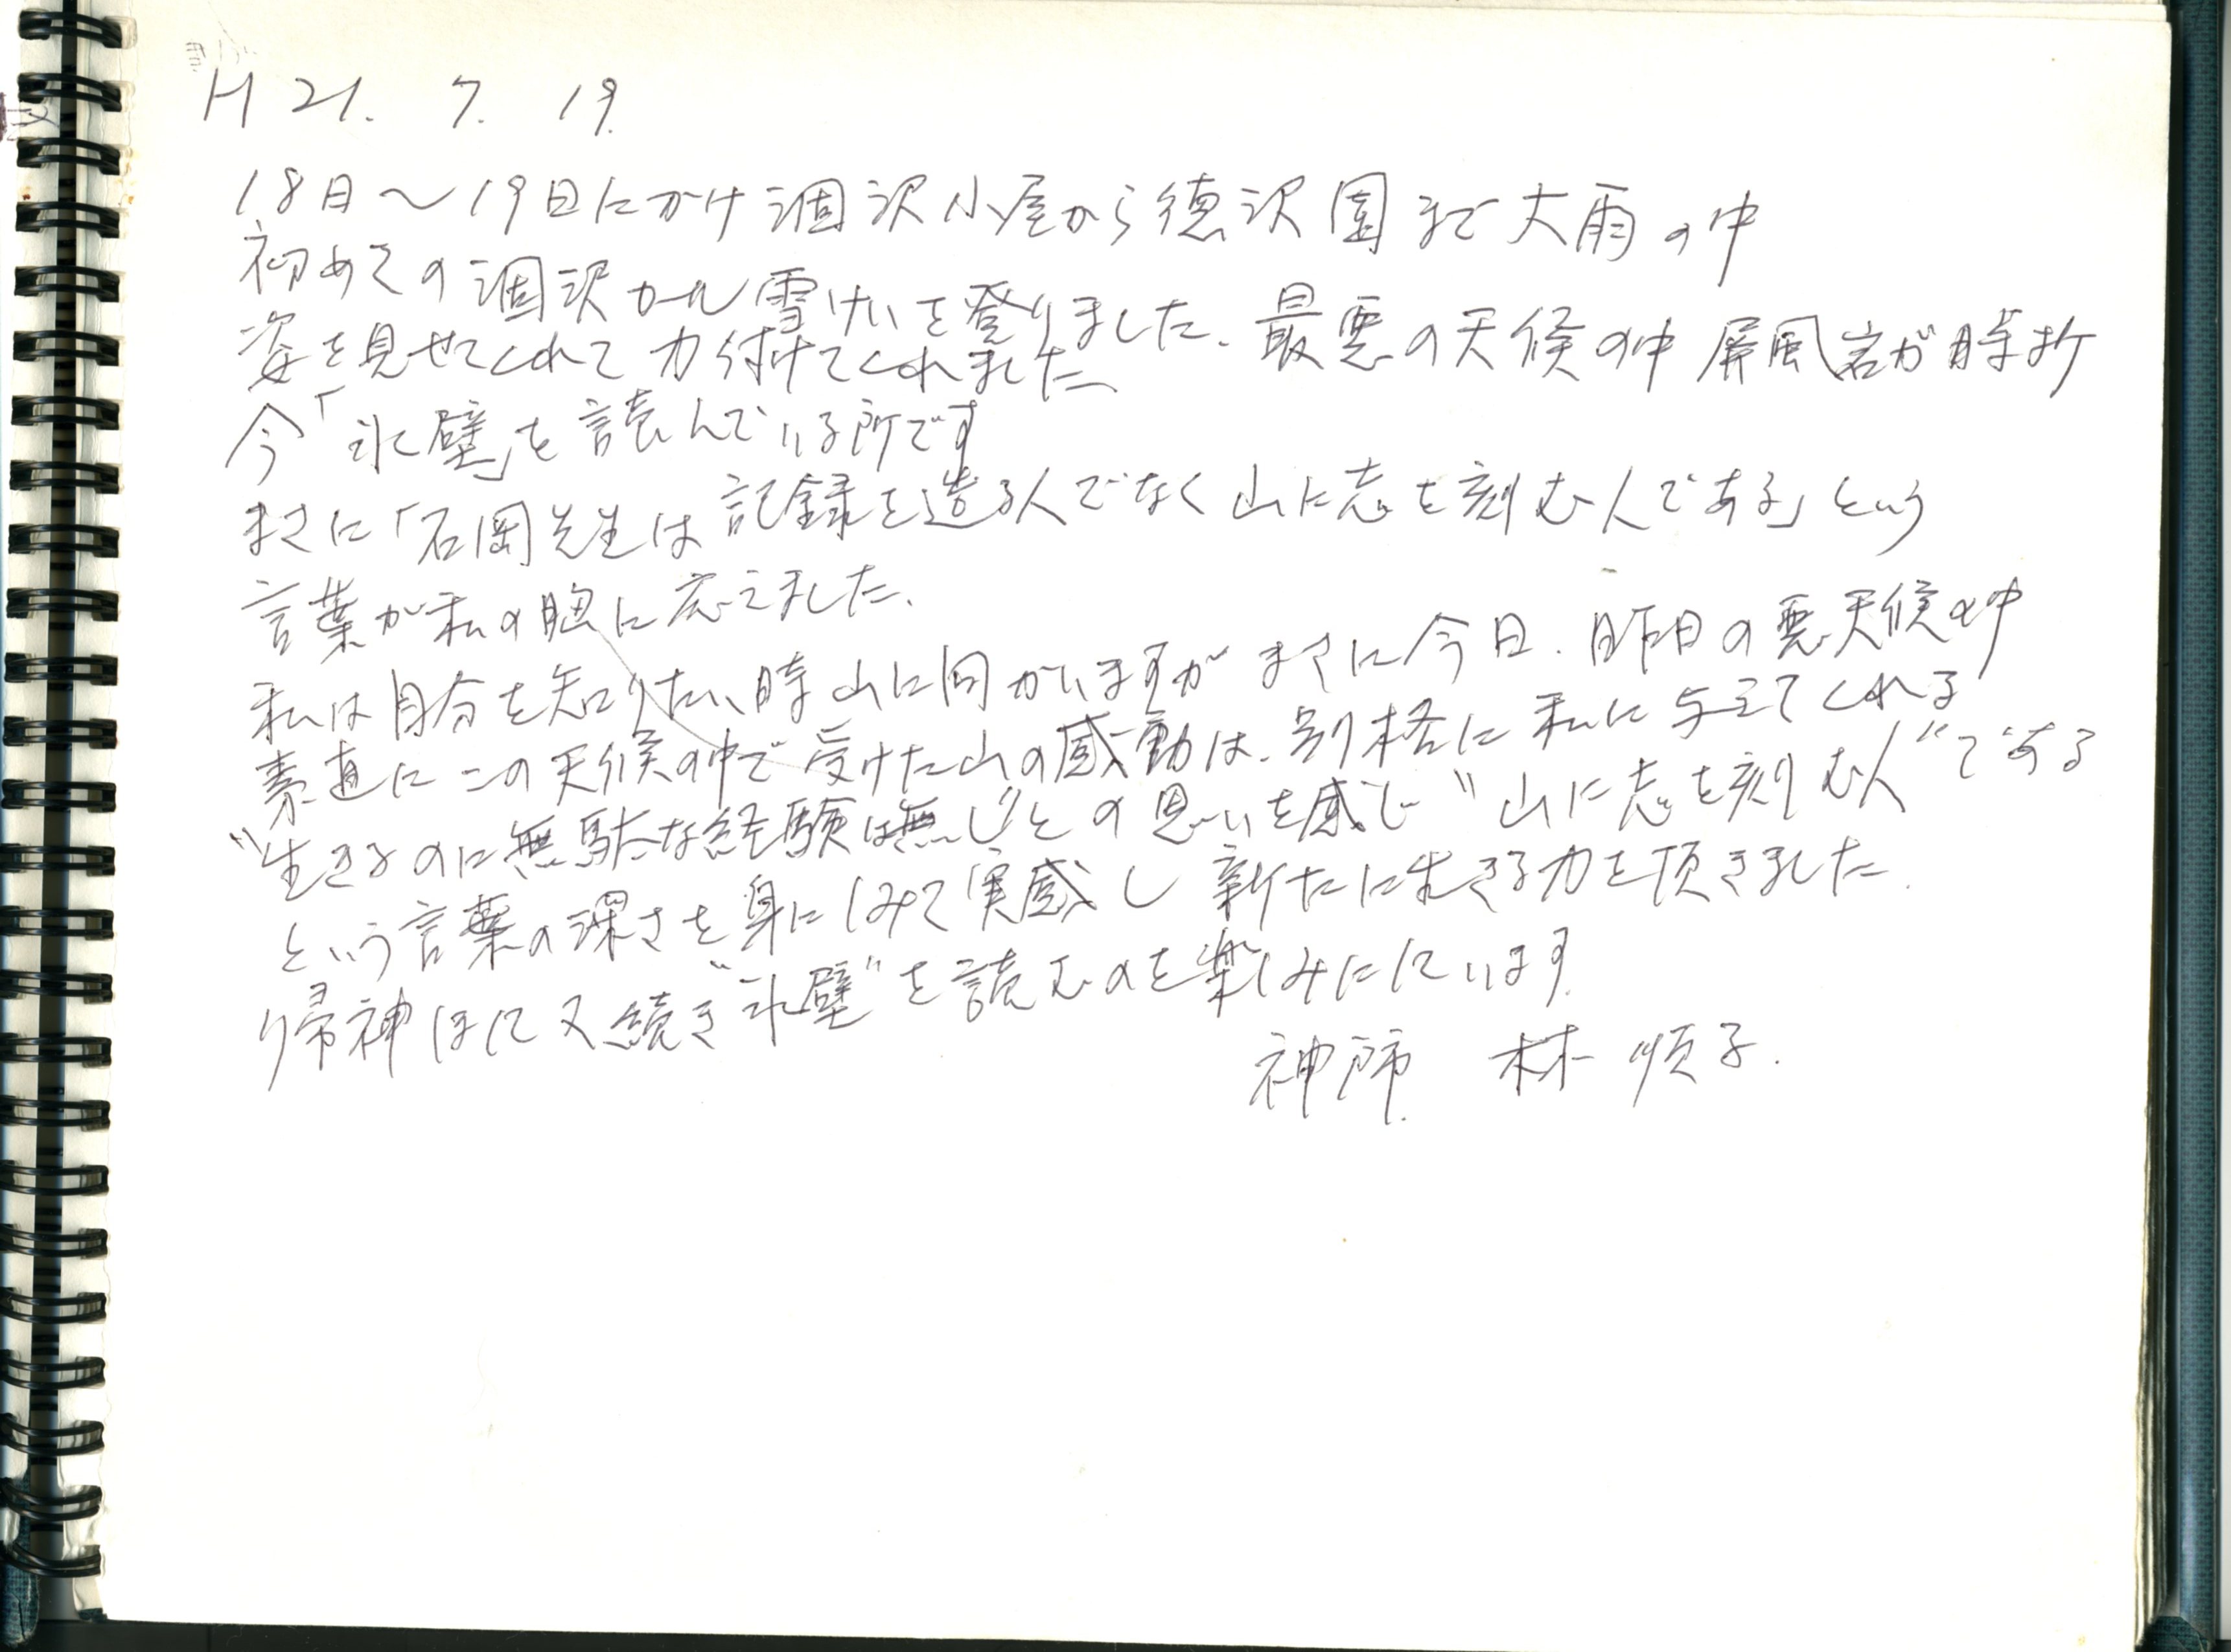 H 21. 7. 19.
18日〜19日にかけ涸沢小屋から徳沢園まで大雨の中
初めての涸沢カール雪けいを登りました、最悪の天候の中屏風岩が時折
姿を見せてくれて力付けてくれました、
今「氷壁」を読んでいる所です
まさに「石岡先生は記録を造る人でなく山に志を刻む人である」という
言葉が私の胸に応えました、
私は自分を知りたい時山に向かいますがまさに今日.昨日の悪天候の中
素直にこの天候の中で受けた山の感動は、別格に私に与えてくれる
"生きるのに無駄な経験は無し"との思いを感じ"山に志を刻む人"である
という言葉の深さを身にしみて実感し新たに生きる力を頂きました.
帰神して又続き"氷壁"を読むのを楽しみにしています.
林 順子.